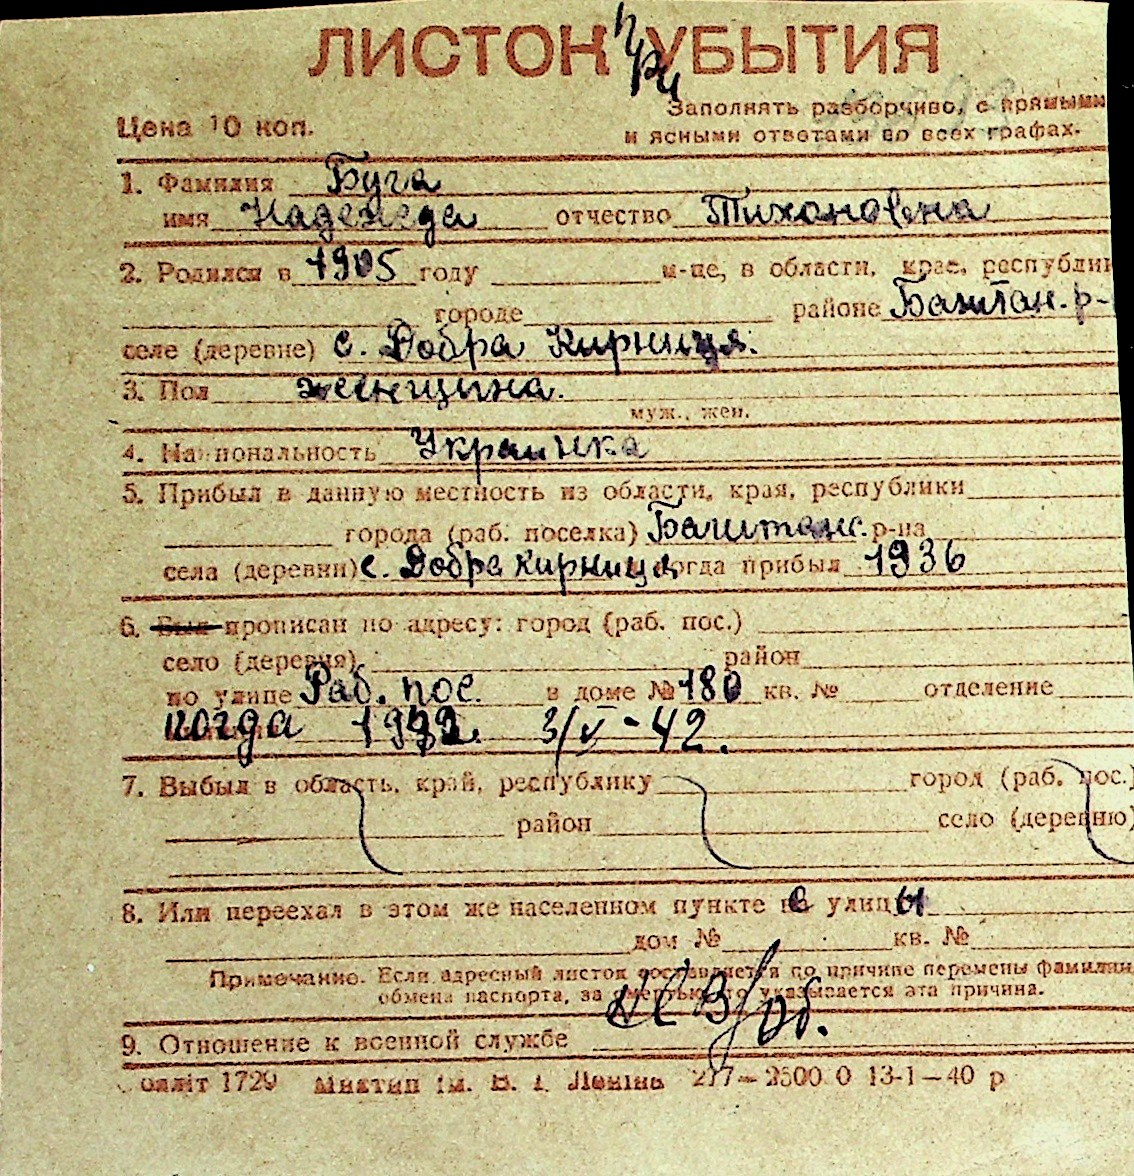 ЛИСТОК УБЫТИЯ
При
Цена 10 коп.
Заполнять разборчиво, с прямыми
и ясными ответами во всех графах.
1. Фамилия Буга
имя Надежда отчество Тихоновна
2. Родился в 1905 году м-це, в области, крае, республик
городе районе Баштан. р-
селе (деревне) с. Добра Кирниця.
3. Пол женщина.
муж., жен.
4. Национальность Украинка
5. Прибыл в данную местность из области, края, республики
города (раб. поселка) Баштанс. р-на
села (деревни) с. Добра Кирница когда прибыл 1936
6. Был прописан по адресу: город (раб. пос.)
село (деревня) район
по улице Раб. пос. в доме № 180 кв. № отделение
когда 3/V-42.
7. Выбыл в область, край, республику город (раб. пос.)
район село (деревню)
8. Или переехал в этом же населенном пункте с улицы
дом № кв. №
Примечание. Если адресный листок составляется по причине перемены фамилии,
обмена паспорта, за смертью то указывается эта причина.
9. Отношение к военной службе
1729 Миктип ім. В. І. Леніна 217—2500 0 13-1—40 р